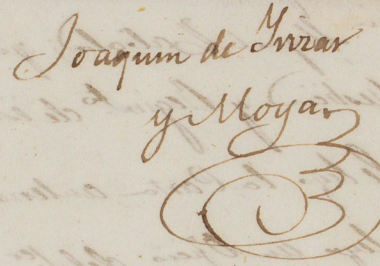 Joaquin de Yrizar
y Moya